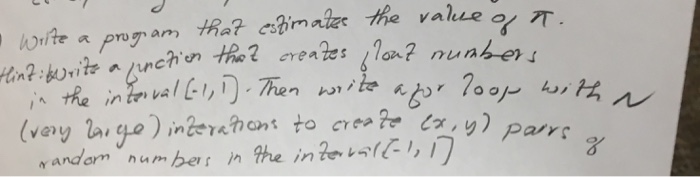 ) Write a program that estimates the value of π.
Hint: Write a function that creates float numbers
in the interval [-1,1]. Then write a for loop with N
(very large) interations to create (x,y) pairs of
random numbers in the interval [-1,1]